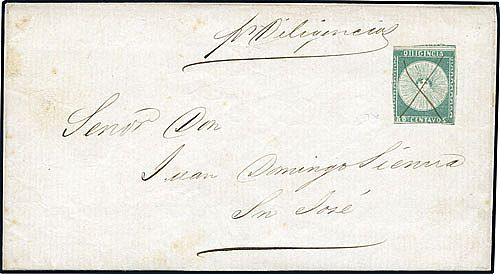 pr Diligencia
DILIGENCIA
80 CENTAVOS
Señor Don
Juan Domingo Sienra
Sn José